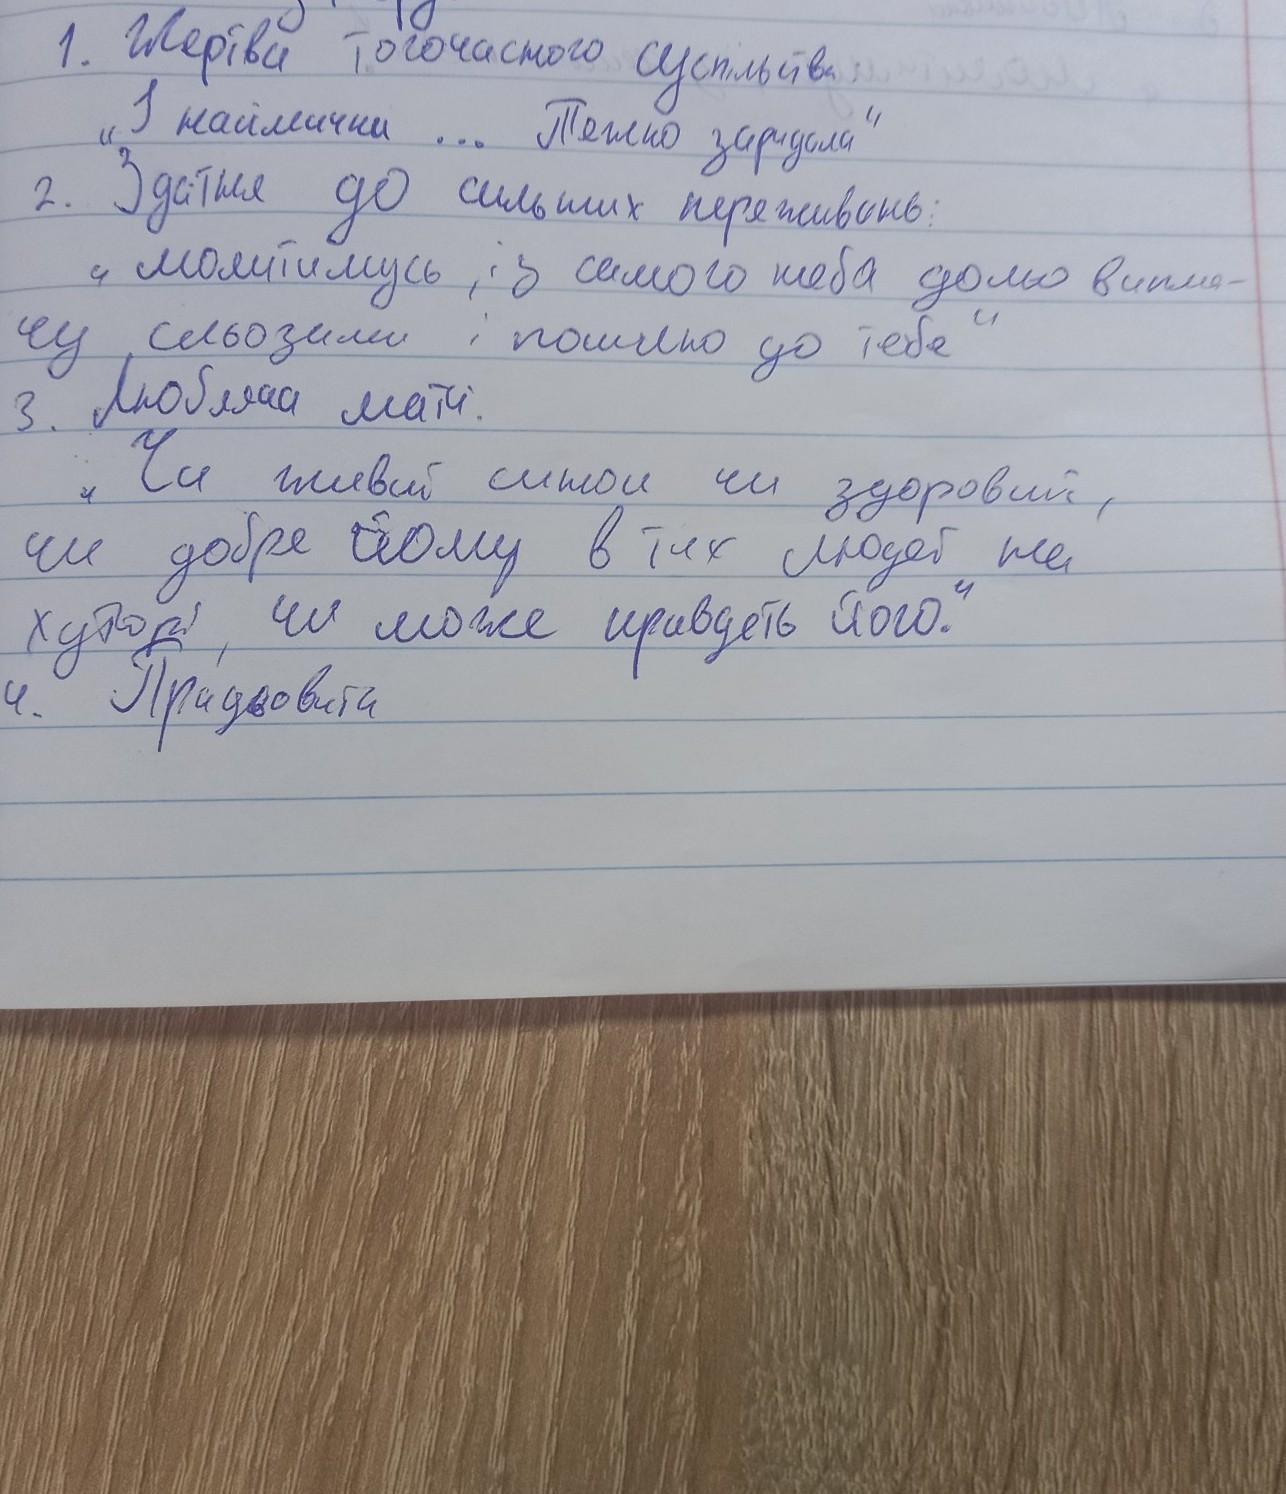 1. Жертва тогочасного суспільства
„І наймички ... Тяжко заридала"
2. Здатна до сильних переживань:
„молитимусь, із самого неба долю випла-
чу сльозами і пошлю до тебе"
3. Любляча маті.
„Чи живий синой чи здоровий,
чи добре йому в тих людей на
хуторі, чи може кривдеть його."
4. Працьовита